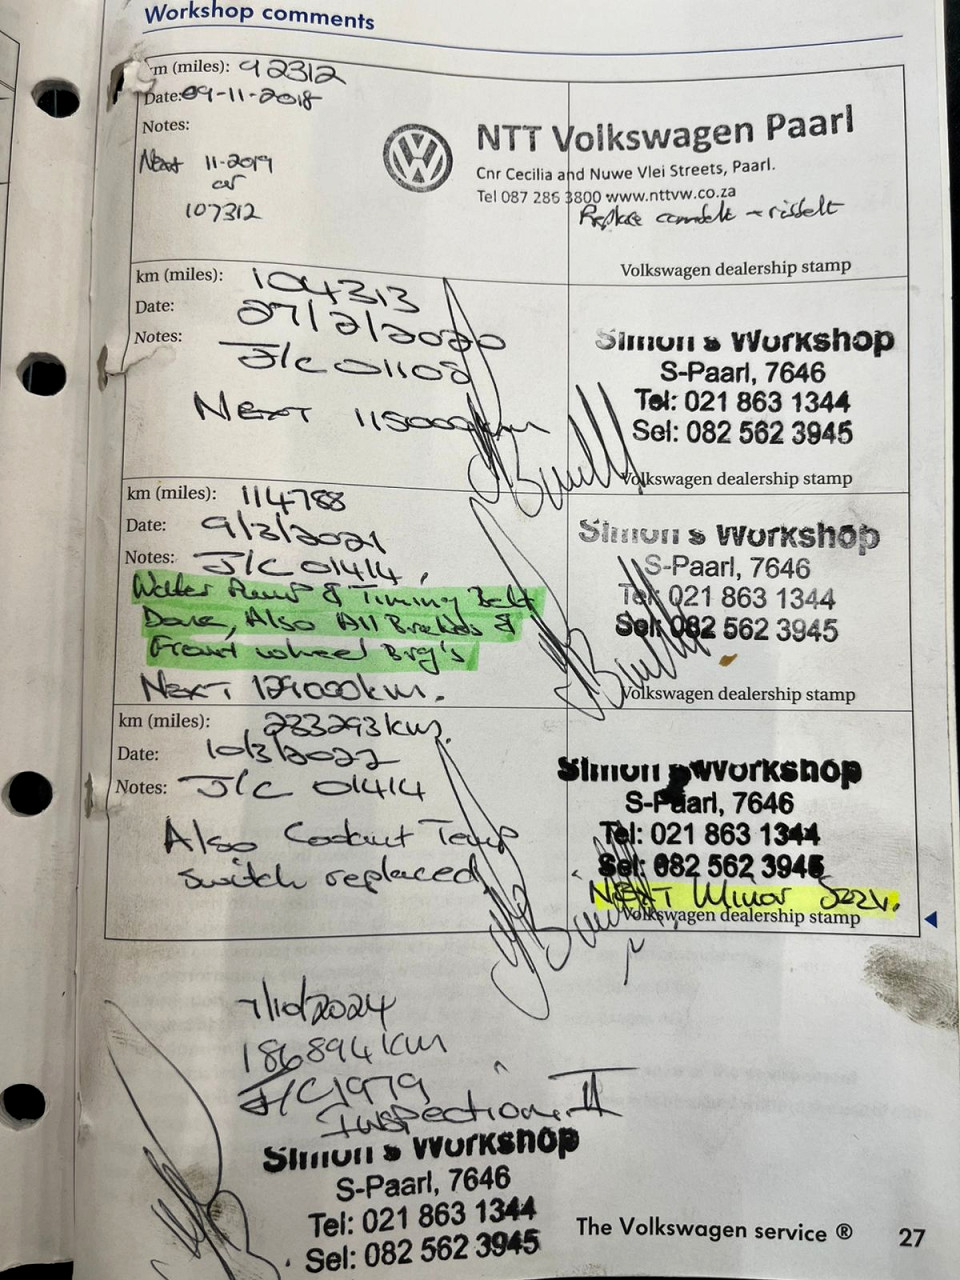 Workshop comments
km (miles): 92312
Date: 09-11-2018
Notes:
Next 11-2019
or
107312
NTT Volkswagen Paarl
Cnr Cecilia and Nuwe Vlei Streets, Paarl.
Tel 087 286 3800 www.nttvw.co.za
Replace
Volkswagen dealership stamp
km (miles): 104313
Date: 27/2/2020
Notes: J/C 01108
Next 115000km
Simon's Workshop
S-Paarl, 7646
Tel: 021 863 1344
Sel: 082 562 3945
Volkswagen dealership stamp
km (miles): 114788
Date: 9/3/2021
Notes: J/C 01414,
Water Pump & Timing Belt
Done, Also All Brakes &
Front wheel Brg's
Next 129000km.
Simon's Workshop
S-Paarl, 7646
Tel: 021 863 1344
Sel: 082 562 3945
Volkswagen dealership stamp
km (miles): 233293km.
Date: 10/3/2022
Notes: J/C 01414
Also Coolant Temp
switch replaced
Simon's Workshop
S-Paarl, 7646
Tel: 021 863 1344
Sel: 082 562 3945
NEXT Minor
Volkswagen dealership stamp
7/10/2024
186894km
J/C 1979
Inspection II
Simon's Workshop
S-Paarl, 7646
Tel: 021 863 1344
Sel: 082 562 3945
The Volkswagen service ®
27